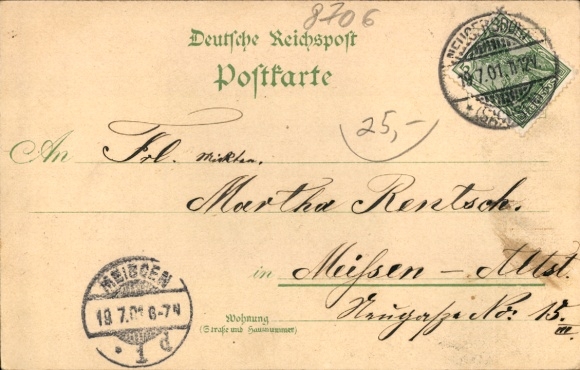 8706
Deutsche Reichspost
Postkarte
NEUGERSDORF
19.7.01.11-12V.
25,-
An Frl.
Martha Rentsch.
in Meißen - Altst.
Wohnung Neugaße No: 15.
(Straße und Hausnummer) III.
MEISSEN
19.7.01 6-7N